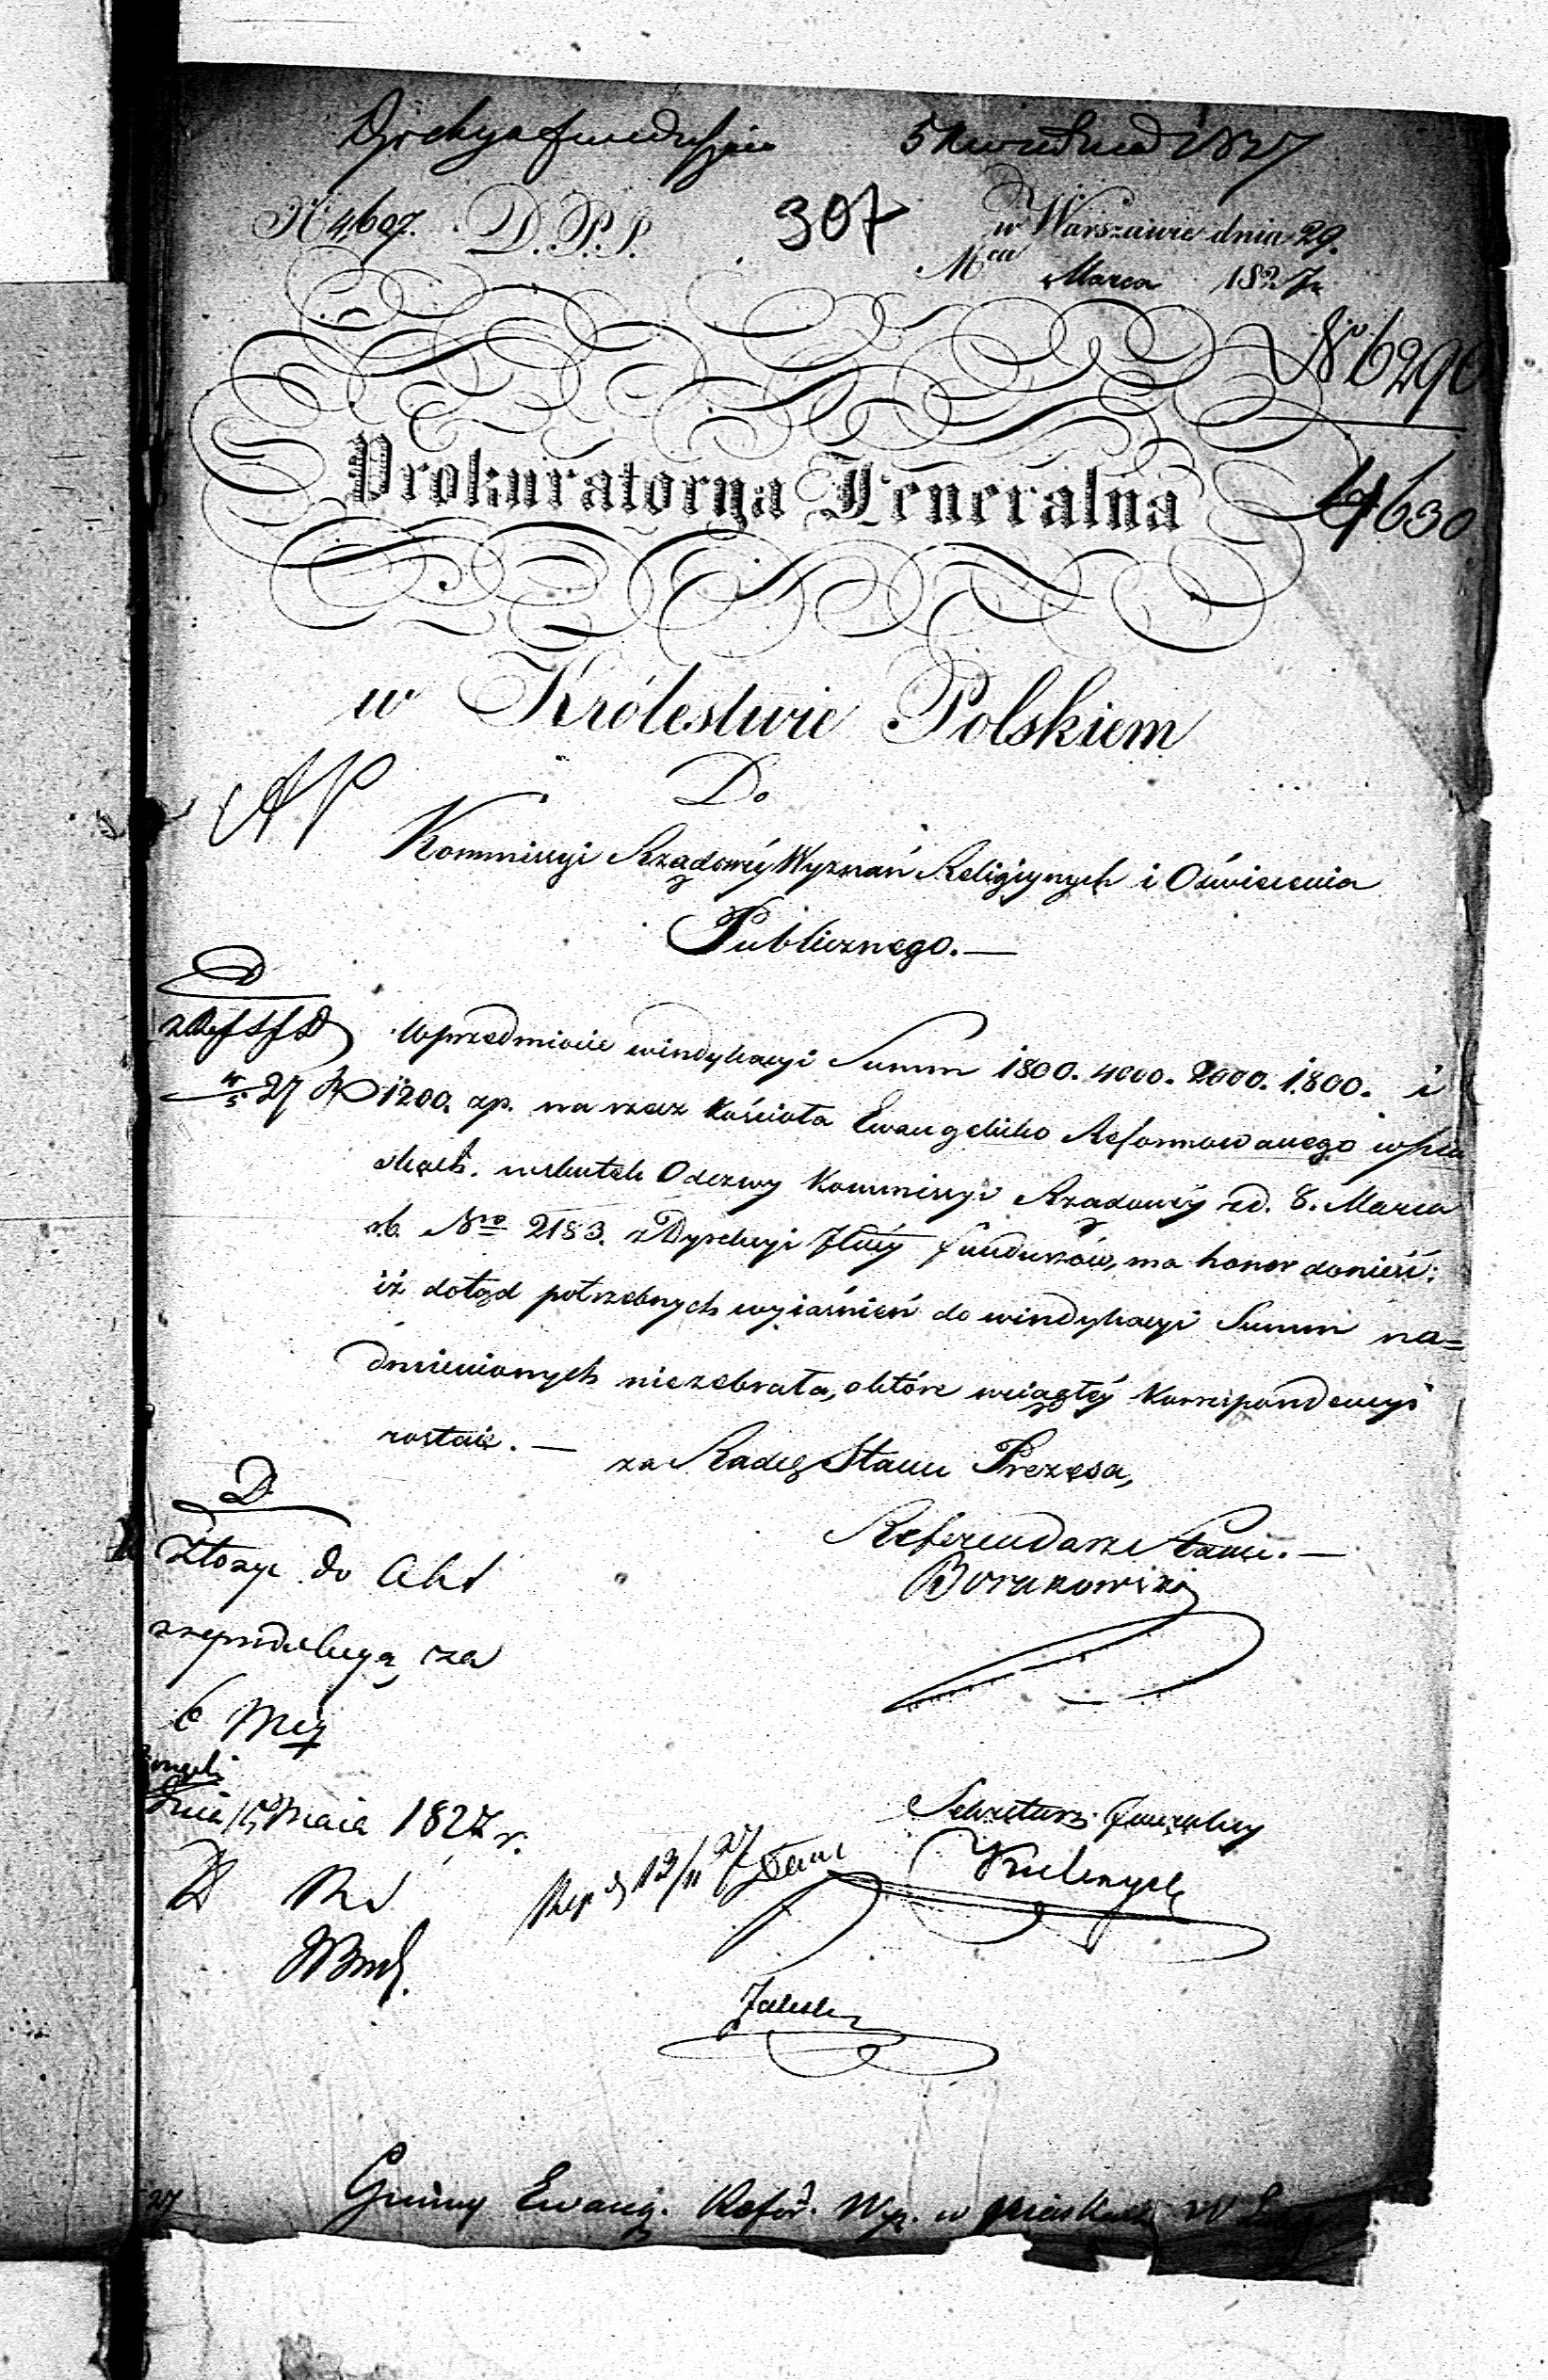 5 Kwietnia 1827
N 4607. D.P.P. 307 w Warszawie dnia 29.
Mca Marca 1827
No 6290
4630
Prokuratorya Generalna
w Królestwie Polskiem
Do
Kommissyi Rządowéy Wyznań Religiynych i Oświecenia
Publicznego.—
W przedmiocie windykacyi Summ 1800. 4000. 2000. 1800. i
1200. zp. na rzecz Kościoła Ewangelicko Reformowanego w Sie
skach. wskutek Odezwy Kommissyi Rządowéy z d. 8. Marca
r.b. Nro 2183. z Dyrekcyi funduszów, ma honor donieść:
iż dotąd potrzebnych wyiaśnień do windykacyi Summ na=
dmienionych niezebrała, o które w ciągłéy Korrespondencyi
zostaie.—
za Radcę Stanu Prezesa,
Referendarz Stanu.—
D
Złożyć do Akt
z reprodukcyą za
6 Mcy
dnia 15 Maia 1827 r.
Sekretarz Jeneralny
Gminy Ewang. Refor. Wyz. w